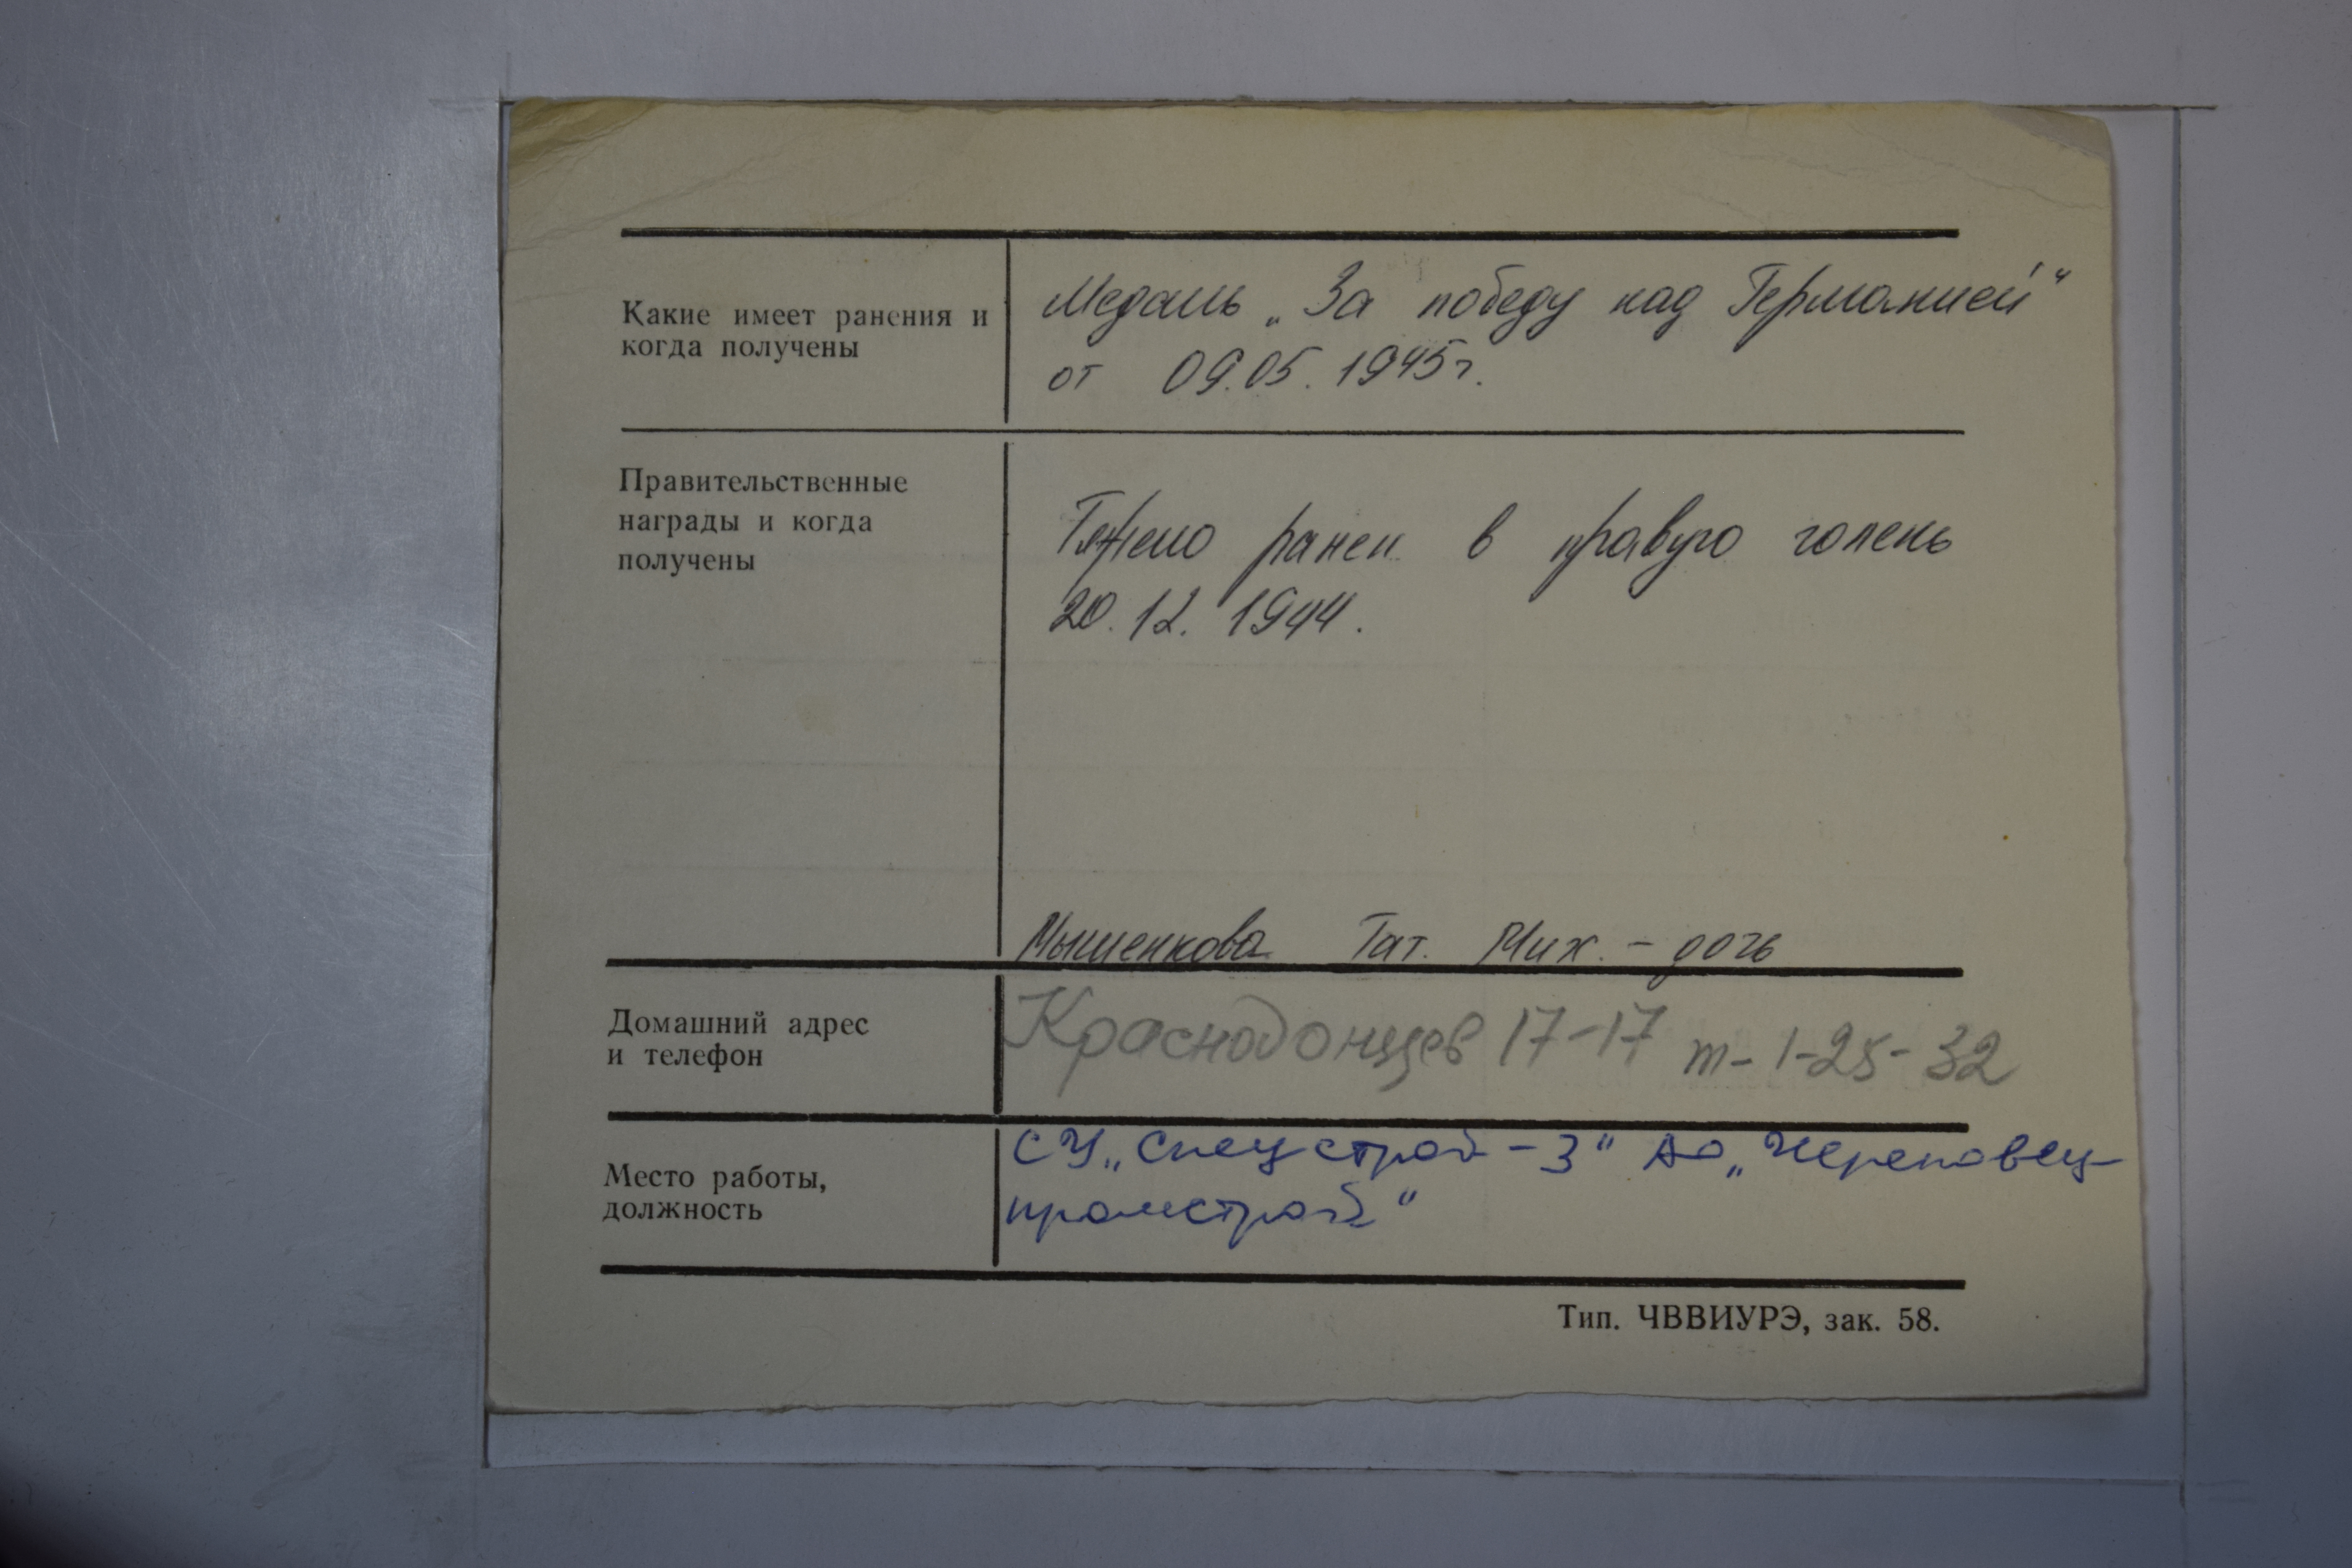 Какие имеет ранения и
когда получены
Медаль „За победу над Германией“
от 09.05.1945г.
Правительственные
награды и когда
получены
Тяжело ранен в правую голень
20.12.1944.
Мышенкова Тат. Мих. - дочь
Домашний адрес
и телефон
Краснодонцев 17-17 т-1-25-32
Место работы,
должность
СУ „Спецстрой-3“ АО „Череповец-
промстрой“
Тип. ЧВВИУРЭ, зак. 58.